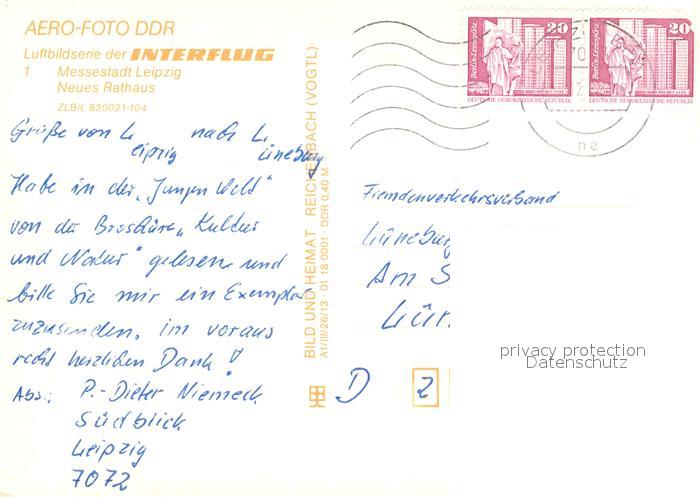 AERO-FOTO DDR
Luftbildserie der INTERFLUG
1 Messestadt Leipzig
Neues Rathaus
ZLB/L 820021-104
Grüße von L nach L
eipzig üneburg
Habe in der „Jungen Welt"
von der Broschüre „Kultur
und Natur" gelesen und
bitte Sie mir ein Exemplar
zuzusenden, im voraus
recht herzlichen Dank!
Abs.: P.-Dieter Niemeck
Südblick
Leipzig
7072
BILD UND HEIMAT REICHENBACH (VOGTL)
A1/III/26/13 · 01 18 0001 · DDR 0,40 M
20
Berlin-Leninplatz
DEUTSCHE DEMOKRATISCHE REPUBLIK
20
Berlin-Leninplatz
DEUTSCHE DEMOKRATISCHE REPUBLIK
ne
Fremdenverkehrsverband
Lüneburg
Am S
Lün
D 2
privacy protection
Datenschutz